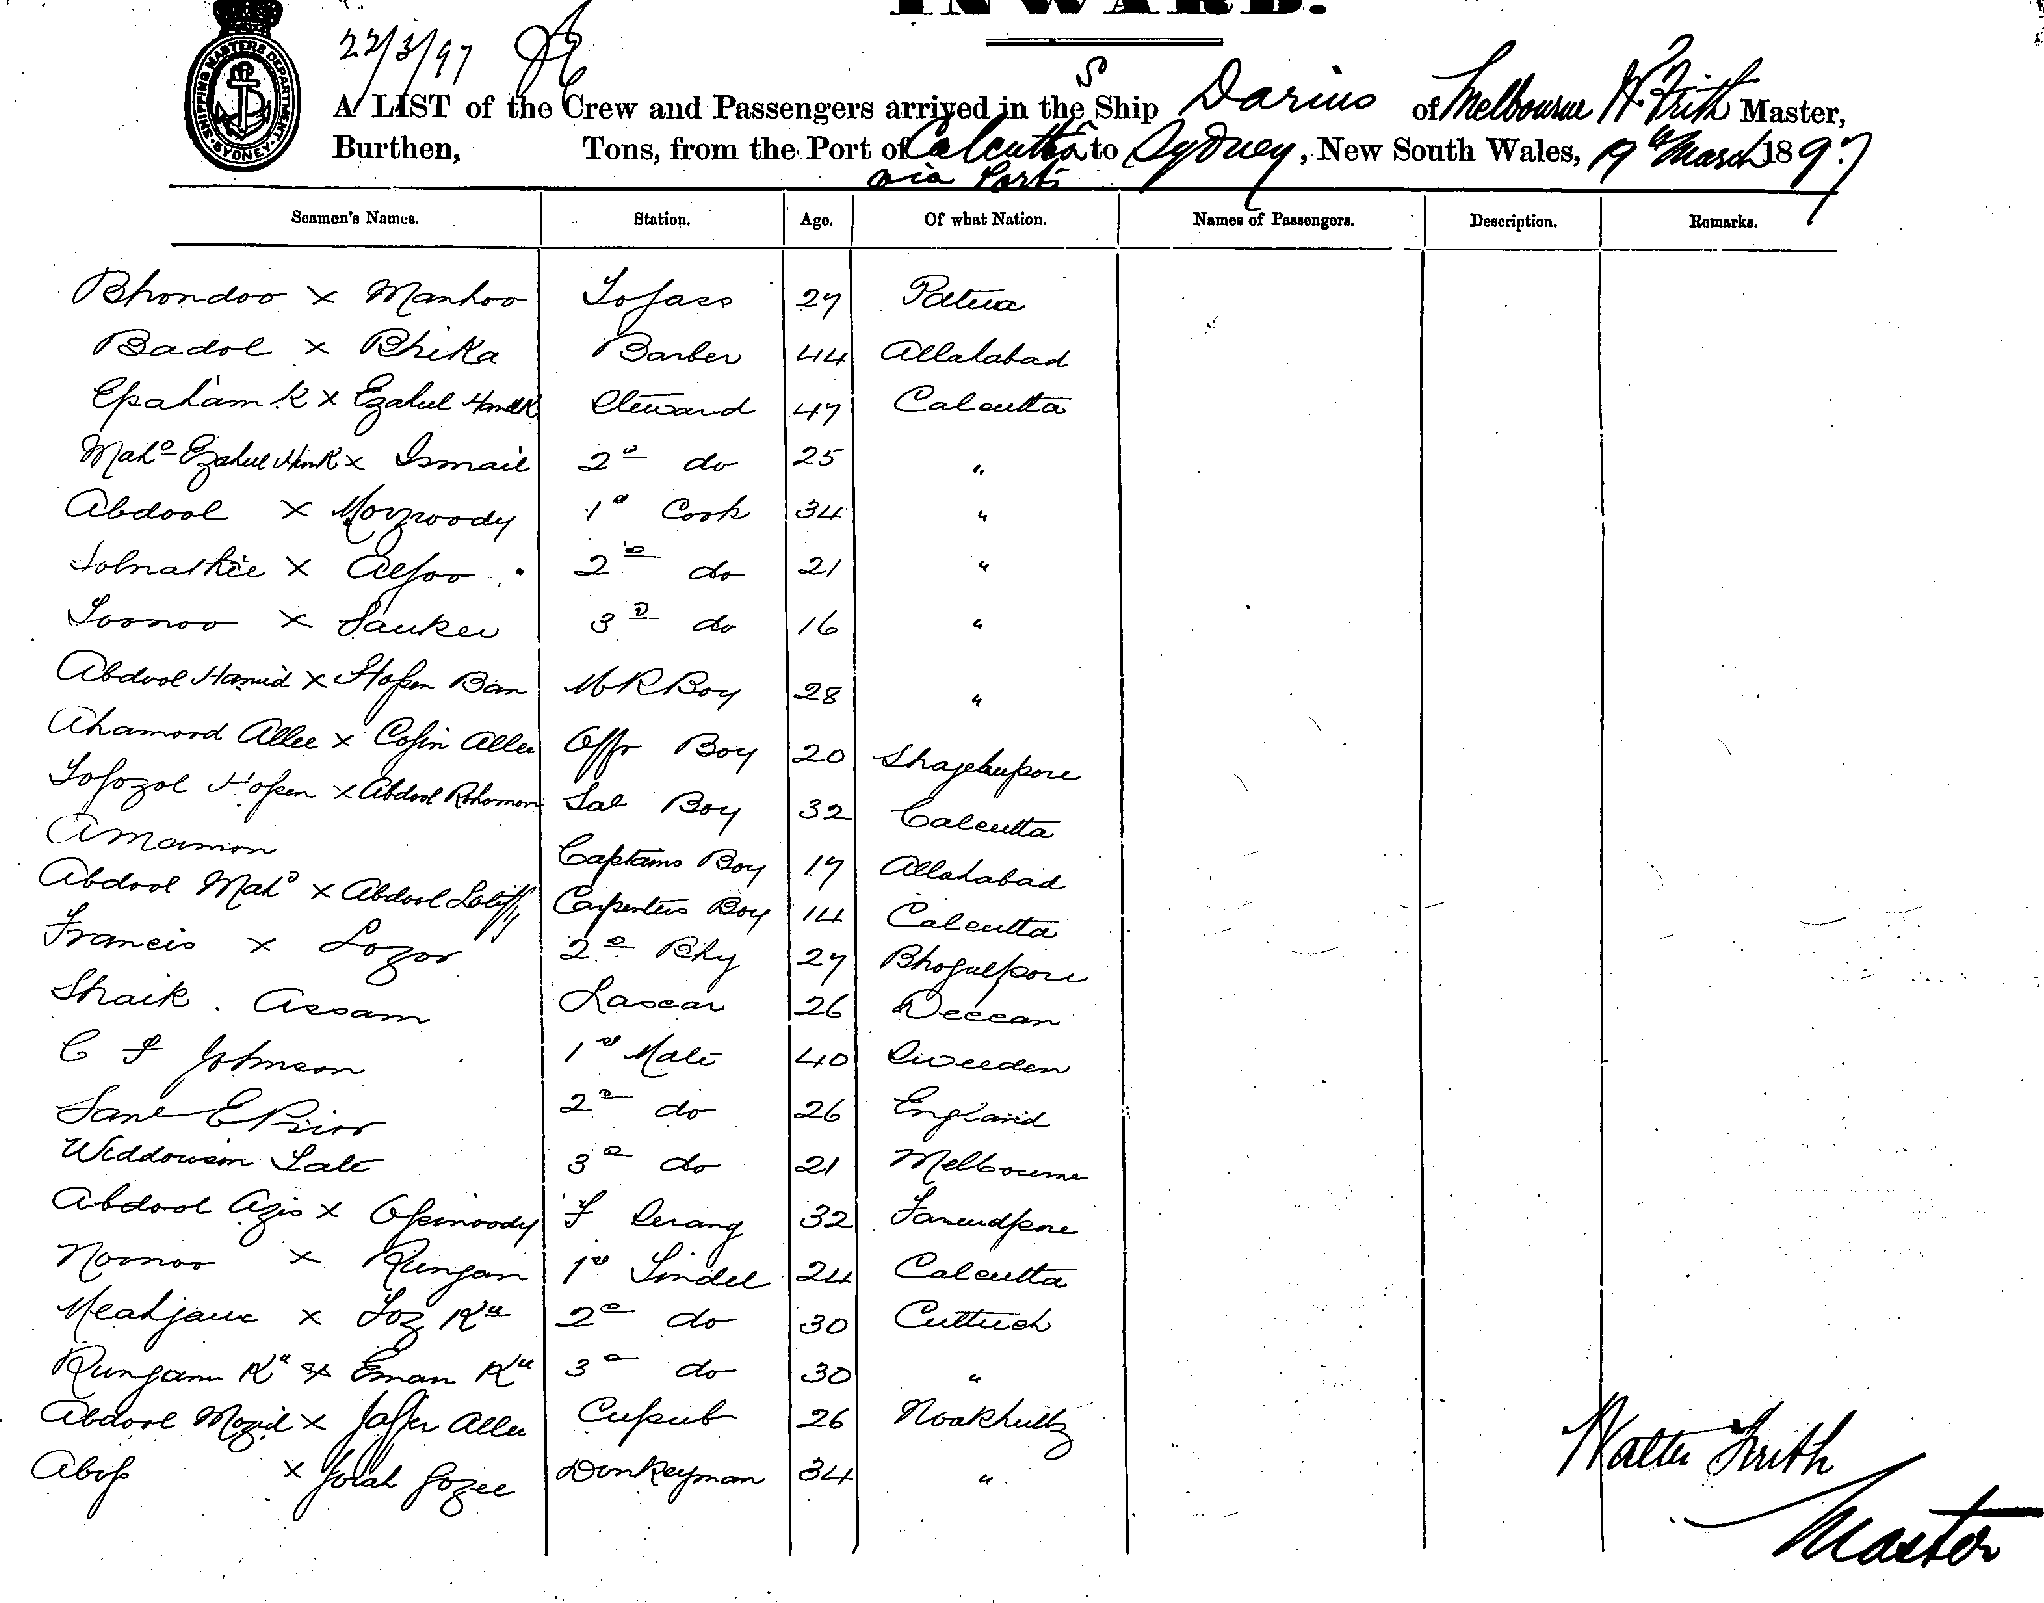 INWARD.
SHIPPING MASTERS DEPARTMENT SYDNEY
22/3/97
A LIST of the Crew and Passengers arrived in the S Ship Darius of Melbourne W. Frith Master,
Burthen, Tons, from the Port of Calcutta to Sydney, New South Wales, 19th March 1897
via Ports
Seamen's Names. Station. Age. Of what Nation. Names of Passengers. Description. Remarks.
Bhondoo x Manhoo 27 Patna
Badol x Bhika Barber 44 Allahabad
x Ezahel Steward 47 Calcutta
Mahd Ezahel x Ismail 2d do 25 "
Abdool x 1st Cook 34 "
x 2d do 21 "
Toonoo x 3d do 16 "
Abdool Hamid x Hossen Ban M R Boy 28 "
Ahamood Allee x Cossin Allee Offr Boy 20
Hossen x Abdool Rohomon Sal Boy 32 Calcutta
Amamon Captains Boy 17 Allahabad
Abdool Mahd x Abdool Latiff Carpenters Boy 14 Calcutta
Francis x Lozor 2d Bhy 27 Bhogulpore
Shaik Assam Lascar 26 Deccan
C F Johnson 1st Mate 40 Sweeden
E Prior 2d do 26 England
Widdowson Tate 3d do 21 Melbourne
Abdool Azis x Ossimoody F Serang 32
Noonoo x Rungan 1st Tindel 24 Calcutta
x 2d do 30 Cuttuch
x Eman 3d do 30 "
Abdool Mozid x Jaffer Allee 26
x Donkeyman 34 "
Walter Frith
Master